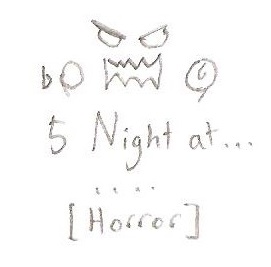 5 Night at...
....
[Horror]